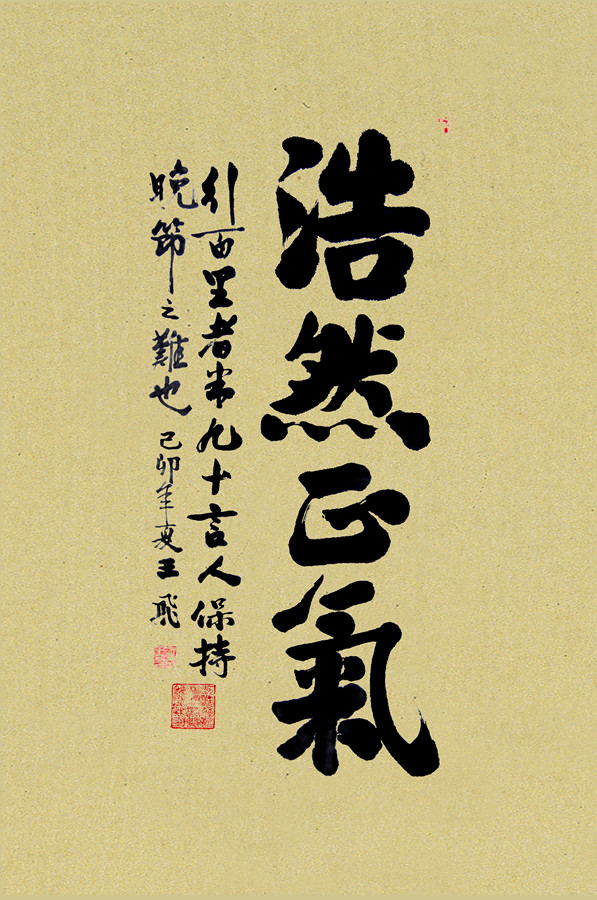 浩然正氣
行百里者半九十言人保持
晚節之難也 己卯年夏王飛